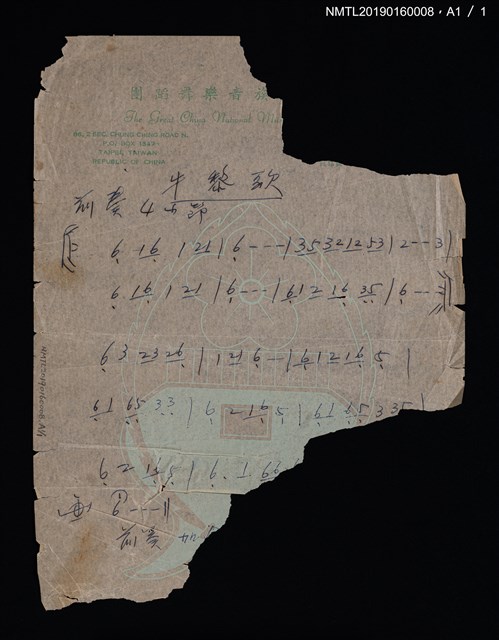 NMTL20190160008,A1 / 1
族音樂舞蹈團
The Great China National Mu
66, 2 SEC. CHUNG CHING ROAD N.
P.O. BOX 1822
TAIPEI, TAIWAN
REPUBLIC OF CHINA
牛黎歌
前奏 4 小節
6 16 1 21 | 6 - - - | 35 32 12 53 | 2 - - 3 |
6 16 1 21 | 6 - - - | 61 2 16 35 | 6 - - 3
6 3 23 26 | 1 21 6 - | 61 2 16 5 |
61 65 33 | 6 21 65 | 61 65 3 35 |
6 2 16 5 | 6. 1 66
6 - - - ||
前奏
NMTL20190160008, A1/1